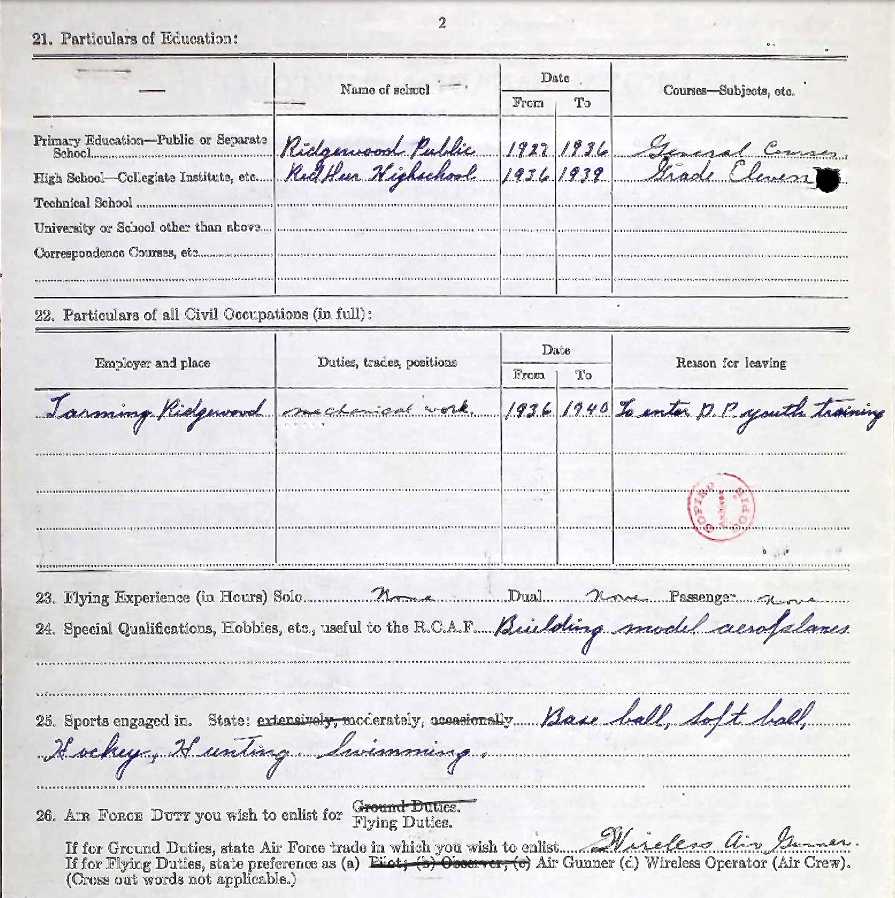 2
21. Particulars of Education:
— Name of school Date Courses—Subjects, etc.
From To
Primary Education—Public or Separate
School Ridgewood Public 1927 1936 General Courses
High School—Collegiate Institute, etc. Highschool 1936 1939 Grade Eleven
Technical School
University or School other than above
Correspondence Courses, etc
22. Particulars of all Civil Occupations (in full):
Employer and place Duties, trades, positions Date Reason for leaving
From To
Farming Ridgewood mechanical work. 1936 1940 To enter D.P. youth training
COPIED
Archives
COPIE
23. Flying Experience (in Hours) Solo None Dual None Passenger None
24. Special Qualifications, Hobbies, etc., useful to the R.C.A.F. Building model aeroplanes
25. Sports engaged in. State: extensively, moderately, occasionally Base ball, Soft ball,
Hockey, Hunting Swimming.
26. AIR FORCE DUTY you wish to enlist for Ground Duties.
Flying Duties.
If for Ground Duties, state Air Force trade in which you wish to enlist Wireless Air Gunner.
If for Flying Duties, state preference as (a) Pilot; (b) Observer; (c) Air Gunner (d) Wireless Operator (Air Crew).
(Cross out words not applicable.)